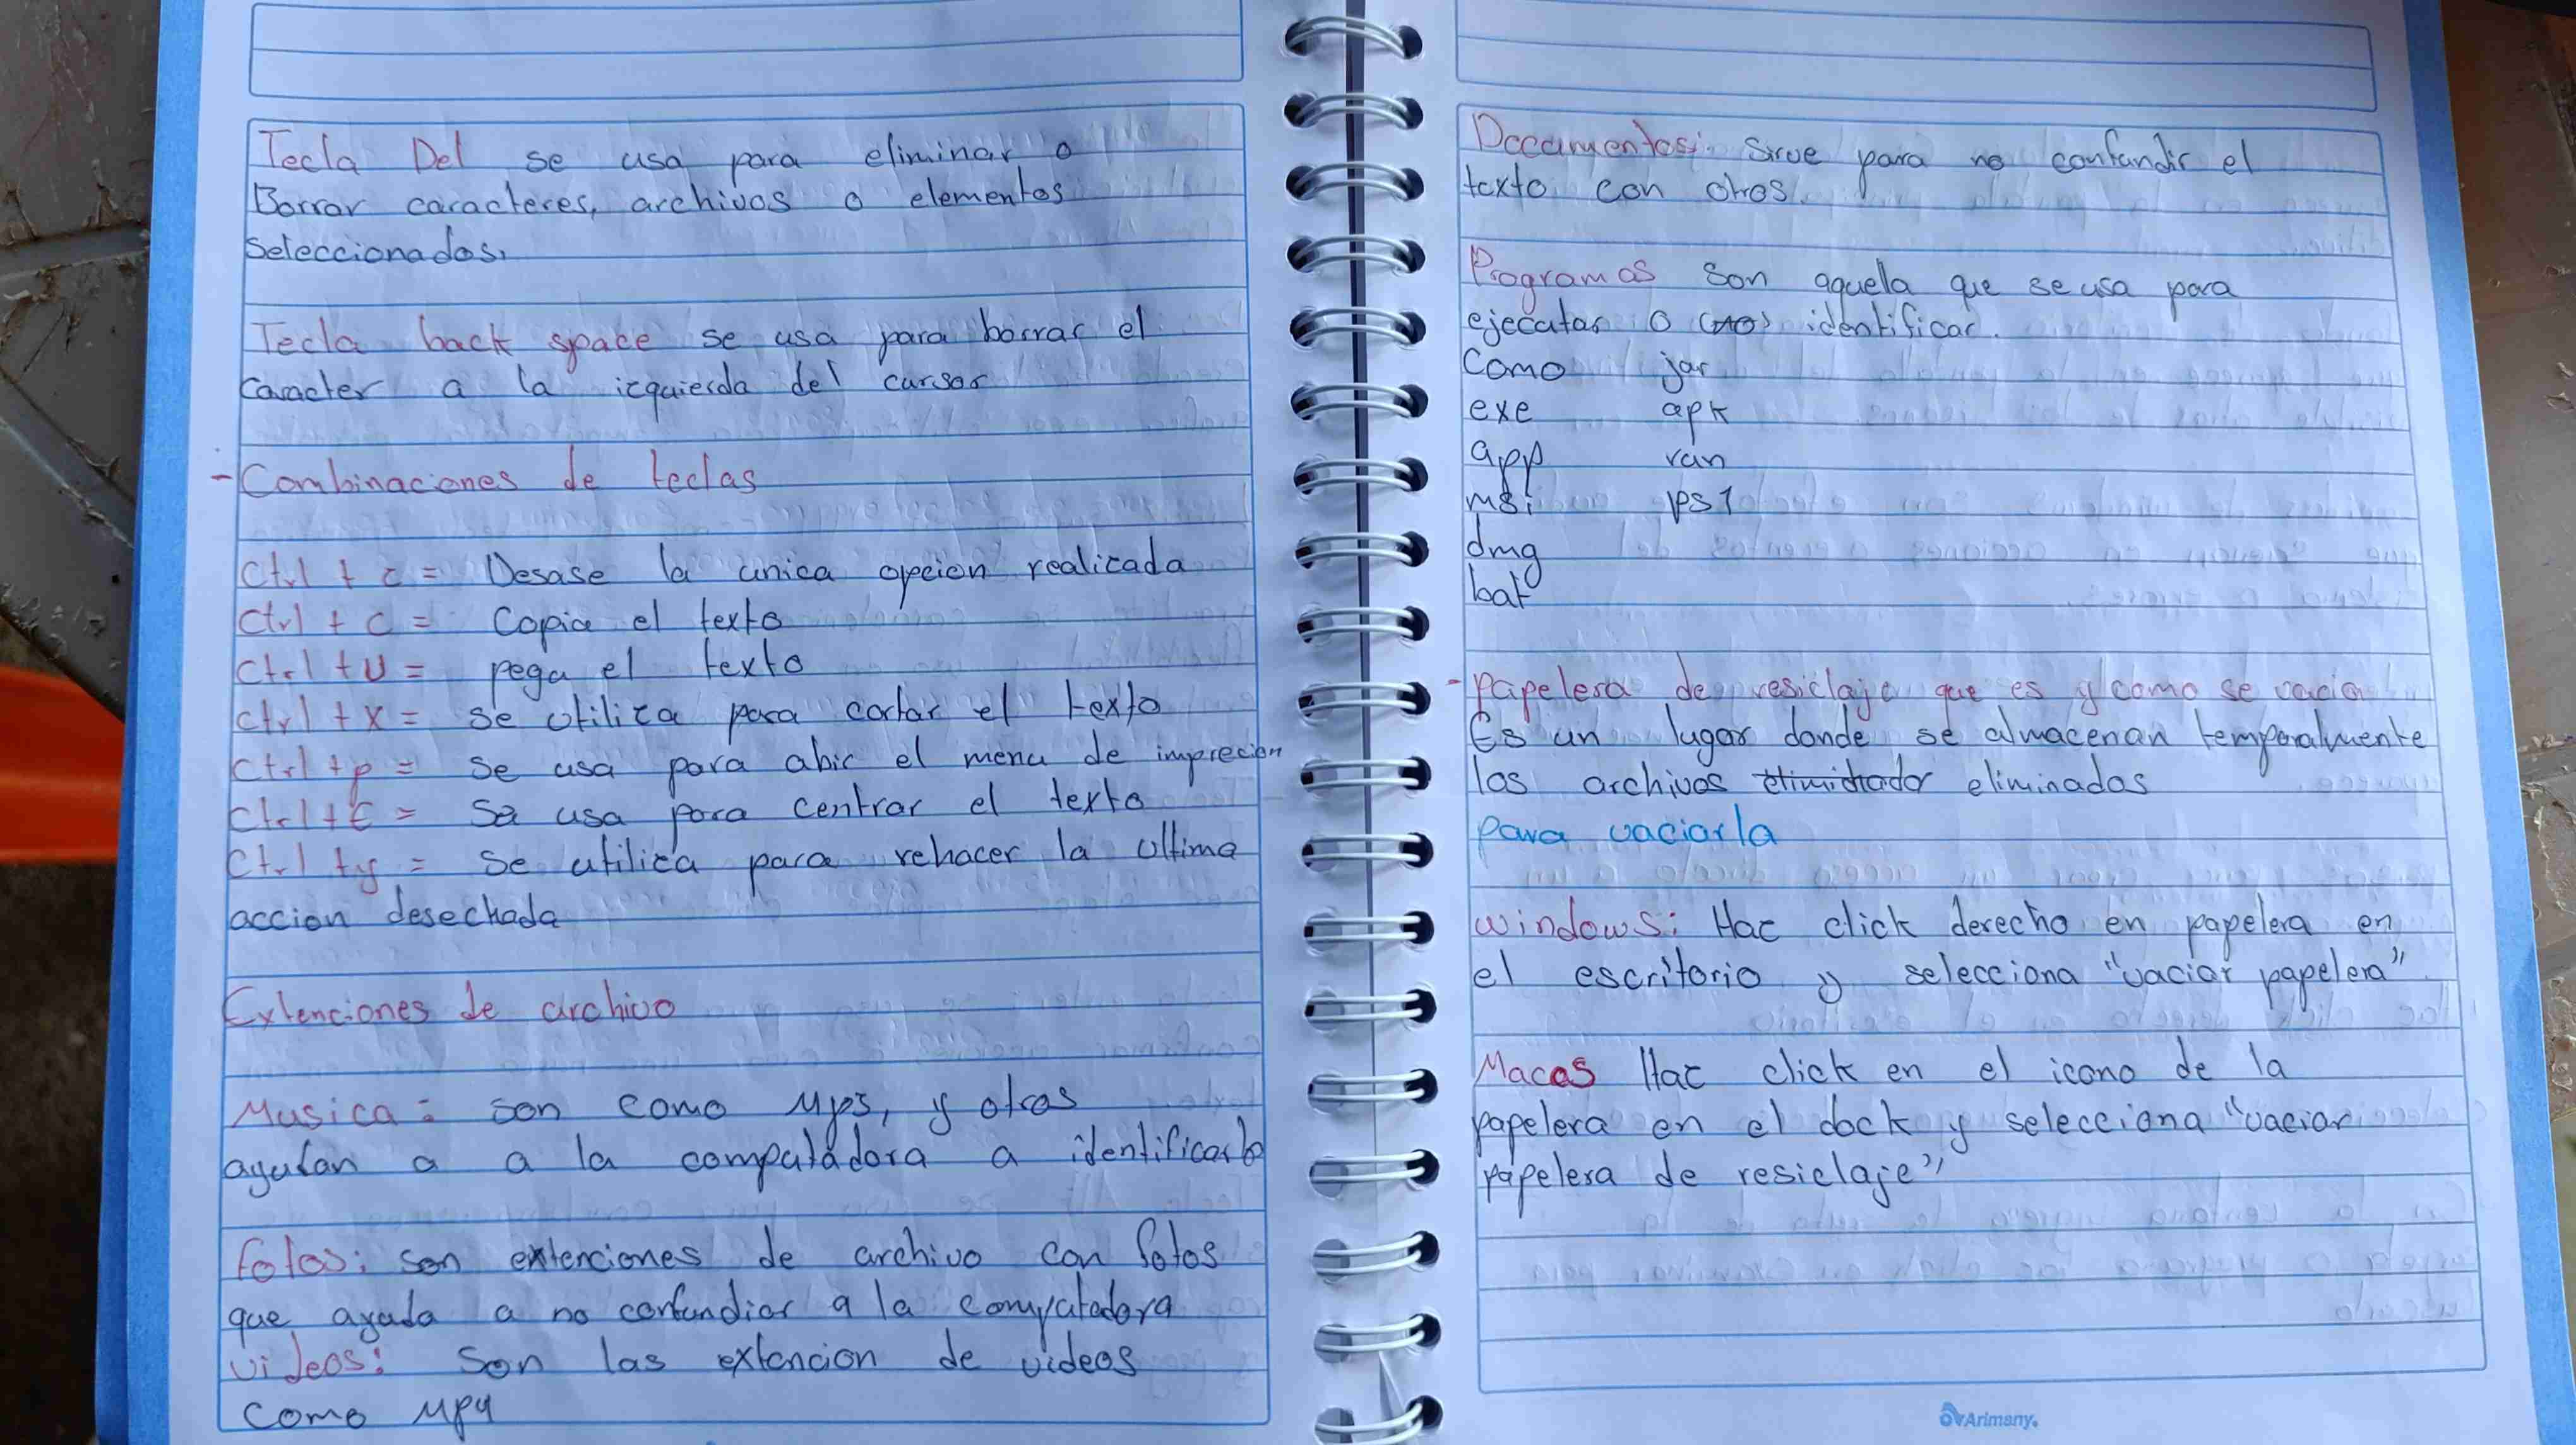 Tecla Del se usa para eliminar o
Borrar caracteres, archivos o elementos
seleccionados.
Tecla back space se usa para borrar el
Caracter a la izquierda del cursor
- Combinaciones de teclas
Ctrl + z = Desase la unica opcion realizada
Ctrl + c = Copia el texto
Ctrl + v = pega el texto
Ctrl + x = se utiliza para cortar el texto
Ctrl + p = se usa para abir el menu de imprecion
Ctrl + E = Se usa para centrar el texto
Ctrl + y = se utiliza para rehacer la ultima
accion desechada
Extenciones de archivo
Musica: son como Mp3, y otros
ayudan a a la computadora a identificarlo
Fotos: son extenciones de archivo con fotos
que ayuda a no confundiar a la computadora
videos: Son las extencion de videos
como MP4
Documentos: Sirve para no confundir el
texto con otros.
Programas son aquella que se usa para
ejecutar o (no) identificar.
Como jar
exe apk
app run
msi ps1
dmg
bat
- papelera de resiclaje que es y como se vacia
Es un lugar donde se almacenan temporalmente
los archivos eliminados
para vaciarla
windows: Haz click derecho en papelera en
el escritorio y selecciona "vaciar papelera"
Macos Haz click en el icono de la
papelera en el dock y selecciona "vaciar
papelera de resiclaje"
Arimany.